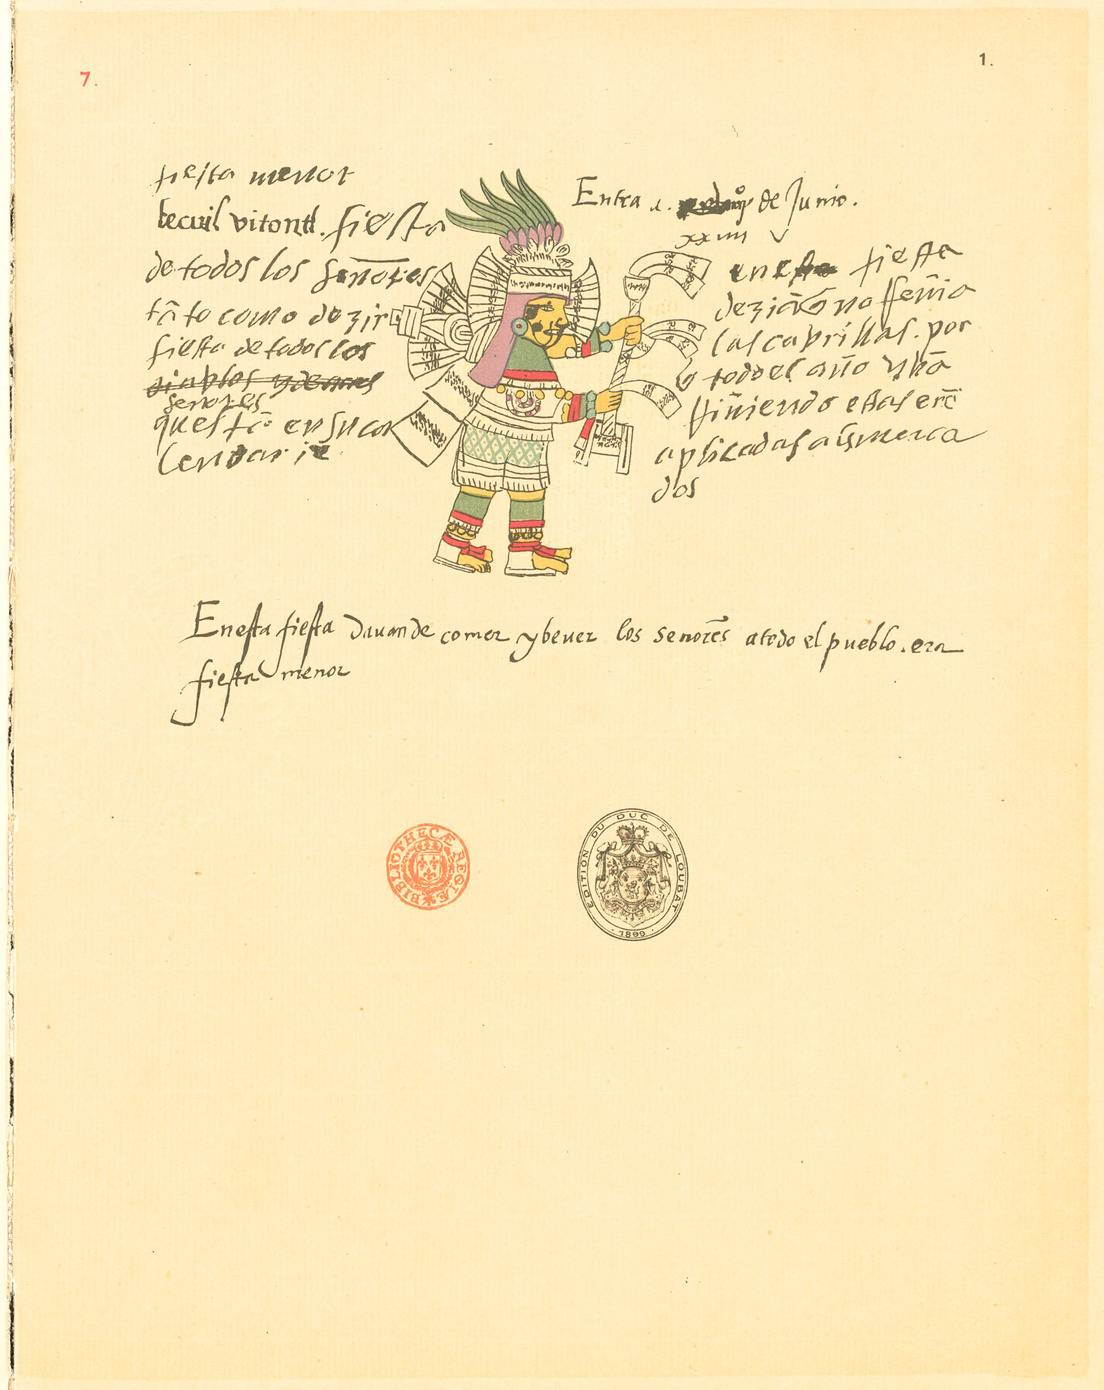 7.
1.
fiesta menor
tecuil vitontl. fiesta
de todos los señores
tāto como dezir
fiesta de todos los
señores
questā en su ca
lendario
Entra de Junio.
xxiiii
en esta fiesta
deziā no
las cabrillas. por
todo el año y hā
estas erā
aplicadas a
dos
En esta fiesta davan de comer y bever los señores a todo el pueblo. era
fiesta menor
BIBLIOTHECÆ REGIÆ
EDITION DU DUC DE LOUBAT
1899